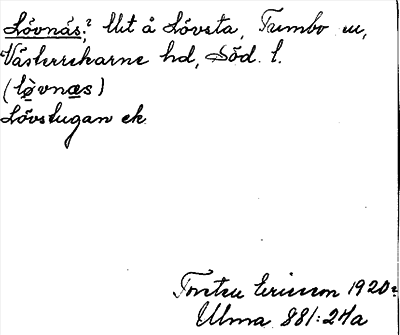 Lövnäs;² Utt å Lövsta, Tumbo sn,
Västerrekarne hd, Söd. l.
(lø̀vnæs)
Lövstugan ek.
Torsten Ericsson 1920:
Ulma 881:24a